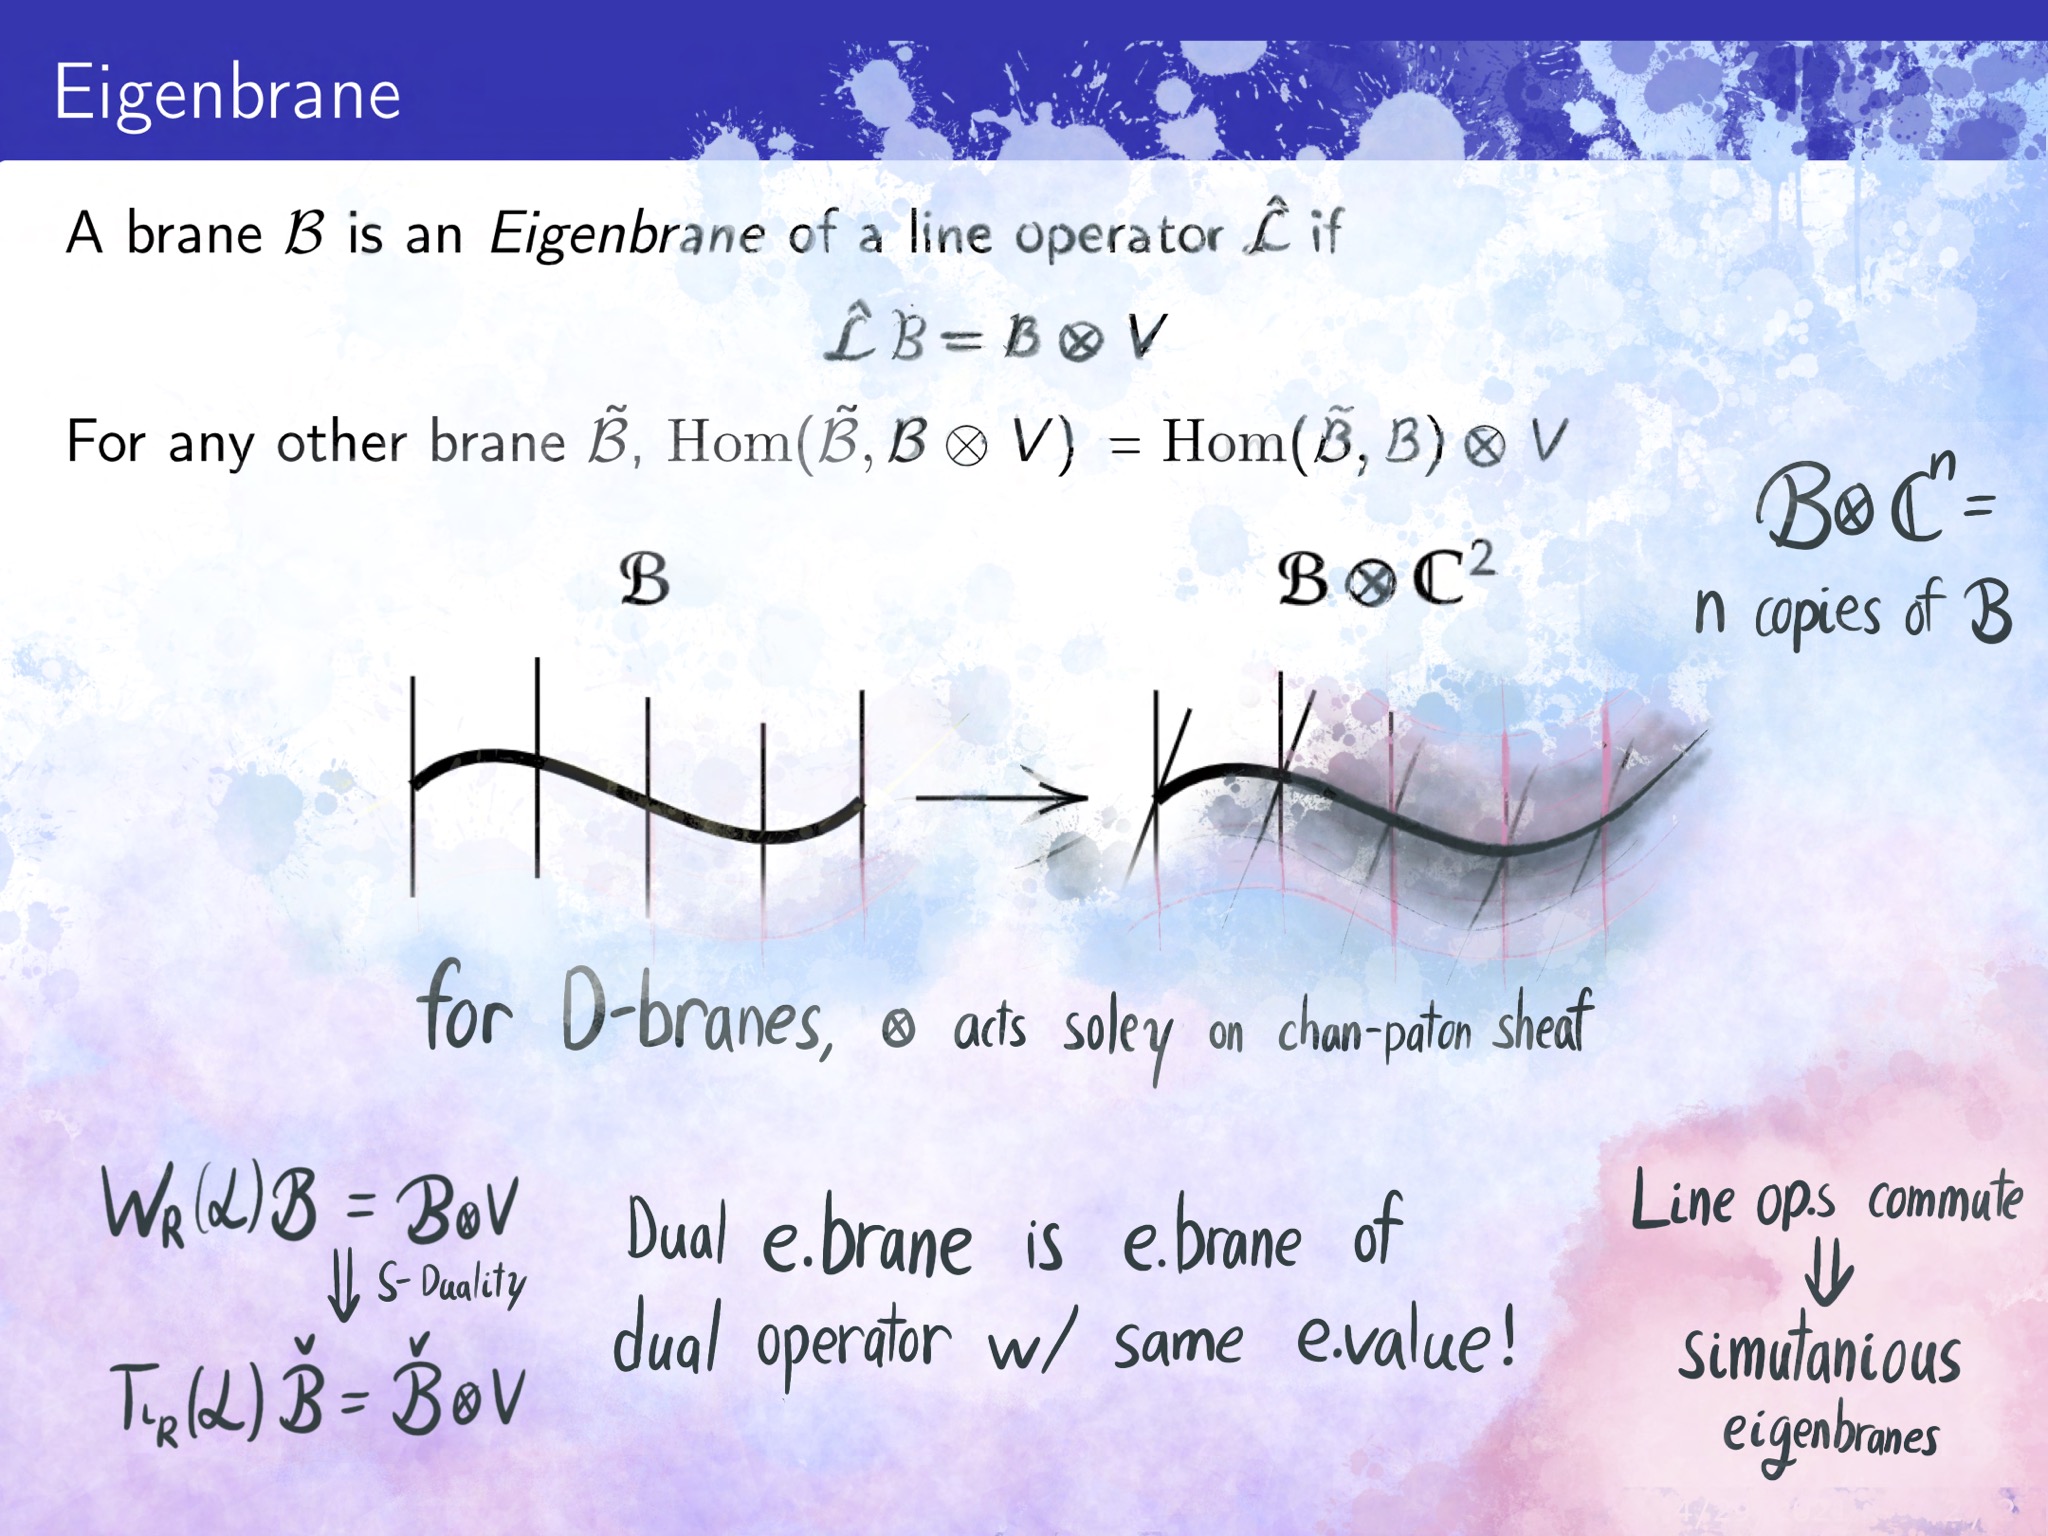 Eigenbrane
A brane ℬ is an Eigenbrane of a line operator ℒ̂ if
ℒ̂ ℬ = ℬ ⊗ V
For any other brane ℬ̃, Hom(ℬ̃, ℬ ⊗ V) = Hom(ℬ̃, ℬ) ⊗ V
ℬ⊗ℂⁿ =
n copies of ℬ
ℬ
ℬ ⊗ ℂ²
for D-branes, ⊗ acts soley on chan-paton sheaf
W_R(ℒ)ℬ = ℬ⊗V
⇓ S-Duality
T_{L_R}(ℒ) ℬ̌ = ℬ̌ ⊗ V
Dual e.brane is e.brane of
dual operator w/ same e.value!
Line op.s commute
⇓
simutanious
eigenbranes